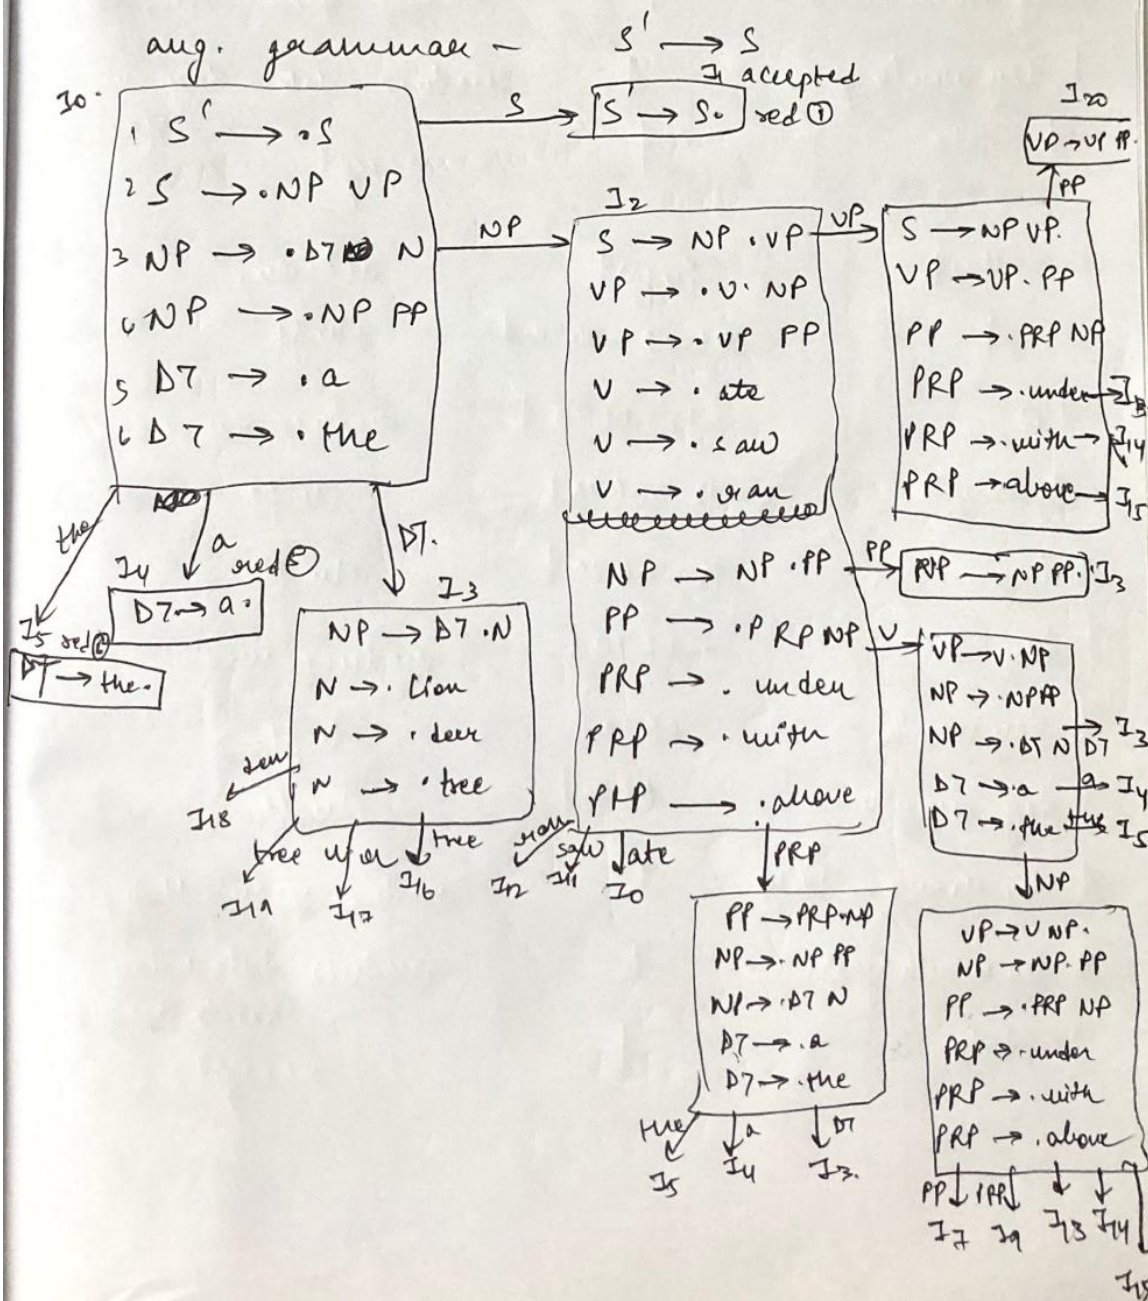 aug. grammar - S' → S
I1 accepted
I0.
1 S' → .S
2 S → .NP VP
3 NP → .DT N
4 NP → .NP PP
5 DT → .a
6 DT → .the
S
S' → S. red ①
NP
I2
S → NP .VP
VP → .V. NP
VP → .VP PP
V → .ate
V → .saw
V → .ran
NP → NP .PP
PP → .PRP NP
PRP → .under
PRP → .with
PRP → .above
VP
S → NP VP.
VP → VP. PP
PP → .PRP NP
PRP → .under → I13
PRP → .with → I14
PRP → above → I15
PP
I20
VP → VP PP.
PP
NP → NP PP. I3
V
VP → V. NP
NP → .NP PP
NP → .DT N DT → I3
DT → .a a → I4
DT → .the the I5
NP
VP → V NP.
NP → NP. PP
PP → .PRP NP
PRP → .under
PRP → .with
PRP → .above
PP PRP
I7 I9 I13 I14
I15
the
a red
DT.
I4
DT → a.
I5 red
DT → the.
I3
NP → DT .N
N → .Lion
N → .deer
N → .tree
I18
tree tree
I19 I17 I16
ran saw ate PRP
I12 I11 I0
PP → PRP.NP
NP → .NP PP
NP → .DT N
DT → .a
DT → .the
the a DT
I5 I4 I3.